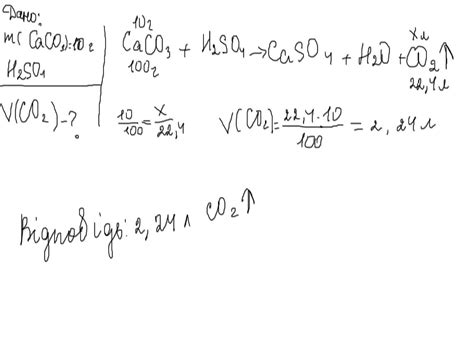 Дано:
m(CaCO3)=10г
H2SO4
V(CO2)-?
10г
Xл
CaCO3 + H2SO4 → CaSO4 + H2O + CO2↑
100г
22,4л
10/100 = X/22,4
V(CO2) = 22,4·10/100 = 2,24л
Відповідь: 2,24л CO2↑